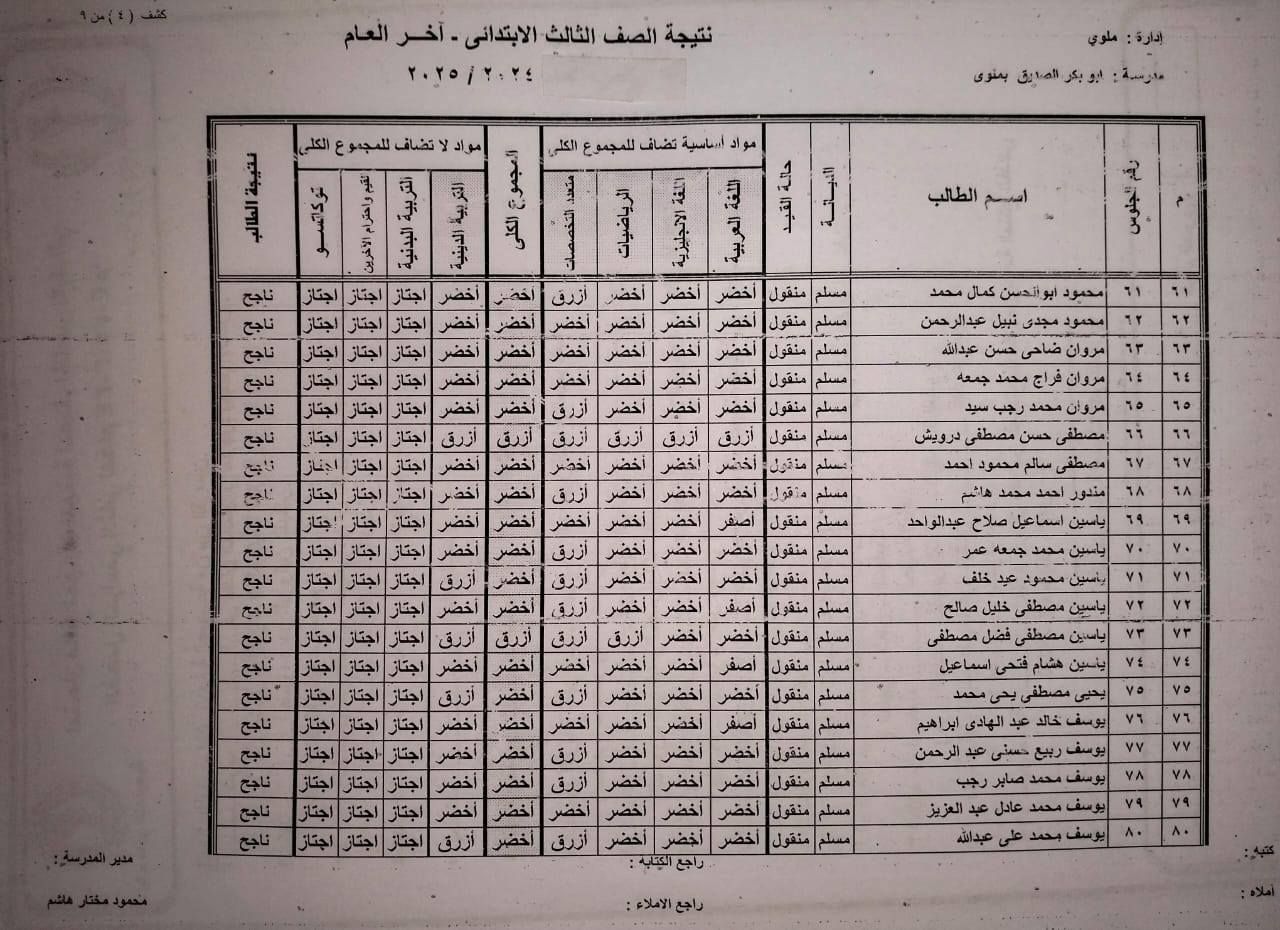 كشف (٤) من ٩
إدارة : ملوي
نتيجة الصف الثالث الابتدائى - آخر العام
مدرسة : ابو بكر الصديق بملوى
٢٠٢٤ / ٢٠٢٥
م رقم الجلوس اسم الطالب الديانة حالة القيد مواد أساسية تضاف للمجموع الكلى المجموع الكلى مواد لا تضاف للمجموع الكلى نتيجة الطالب
اللغة العربية اللغة الانجليزية الرياضيات متعدد التخصصات التربية الدينية التربية البدنية القيم واحترام الآخرين توكاتسو
٦١ ٦١ محمود ابوالحسن كمال محمد مسلم منقول أخضر أخضر أخضر أزرق أخضر أخضر اجتاز اجتاز اجتاز ناجح
٦٢ ٦٢ محمود مجدى نبيل عبدالرحمن مسلم منقول أخضر أخضر أخضر أخضر أخضر أخضر اجتاز اجتاز اجتاز ناجح
٦٣ ٦٣ مروان ضاحى حسن عبدالله مسلم منقول أخضر أخضر أخضر أخضر أخضر أخضر اجتاز اجتاز اجتاز ناجح
٦٤ ٦٤ مروان فراج محمد جمعه مسلم منقول أخضر أخضر أخضر أخضر أخضر أخضر اجتاز اجتاز اجتاز ناجح
٦٥ ٦٥ مروان محمد رجب سيد مسلم منقول أخضر أخضر أخضر أزرق أخضر أخضر اجتاز اجتاز اجتاز ناجح
٦٦ ٦٦ مصطفى حسن مصطفى درويش مسلم منقول أزرق أزرق أزرق أزرق أزرق أزرق اجتاز اجتاز اجتاز ناجح
٦٧ ٦٧ مصطفى سالم محمود احمد مسلم منقول أخضر أخضر أخضر أخضر أخضر أخضر اجتاز اجتاز اجتاز ناجح
٦٨ ٦٨ مندور احمد محمد هاشم مسلم منقول أخضر أخضر أخضر أزرق أخضر أخضر اجتاز اجتاز اجتاز ناجح
٦٩ ٦٩ ياسين اسماعيل صلاح عبدالواحد مسلم منقول أصفر أخضر أخضر أخضر أخضر أخضر اجتاز اجتاز اجتاز ناجح
٧٠ ٧٠ ياسين محمد جمعه عمر مسلم منقول أخضر أخضر أخضر أزرق أخضر أخضر اجتاز اجتاز اجتاز ناجح
٧١ ٧١ ياسين محمود عيد خلف مسلم منقول أخضر أخضر أخضر أزرق أخضر أزرق اجتاز اجتاز اجتاز ناجح
٧٢ ٧٢ ياسين مصطفى خليل صالح مسلم منقول أصفر أخضر أخضر أزرق أخضر أخضر اجتاز اجتاز اجتاز ناجح
٧٣ ٧٣ ياسين مصطفى فضل مصطفى مسلم منقول أخضر أخضر أزرق أزرق أزرق أزرق اجتاز اجتاز اجتاز ناجح
٧٤ ٧٤ ياسين هشام فتحى اسماعيل مسلم منقول أصفر أخضر أخضر أخضر أخضر أخضر اجتاز اجتاز اجتاز ناجح
٧٥ ٧٥ يحيى مصطفى يحى محمد مسلم منقول أخضر أخضر أخضر أخضر أخضر أزرق اجتاز اجتاز اجتاز ناجح
٧٦ ٧٦ يوسف خالد عبد الهادى ابراهيم مسلم منقول أصفر أخضر أخضر أزرق أخضر أخضر اجتاز اجتاز اجتاز ناجح
٧٧ ٧٧ يوسف ربيع حسنى عبد الرحمن مسلم منقول أخضر أخضر أخضر أزرق أخضر أخضر اجتاز اجتاز اجتاز ناجح
٧٨ ٧٨ يوسف محمد صابر رجب مسلم منقول أخضر أخضر أخضر أزرق أخضر أخضر اجتاز اجتاز اجتاز ناجح
٧٩ ٧٩ يوسف محمد عادل عبد العزيز مسلم منقول أخضر أخضر أخضر أخضر أخضر أخضر اجتاز اجتاز اجتاز ناجح
٨٠ ٨٠ يوسف محمد على عبدالله مسلم منقول أخضر أخضر أخضر أزرق أخضر أزرق اجتاز اجتاز اجتاز ناجح
كتبه : راجع الكتابه : مدير المدرسة :
أملاه : راجع الاملاء : محمود مختار هاشم